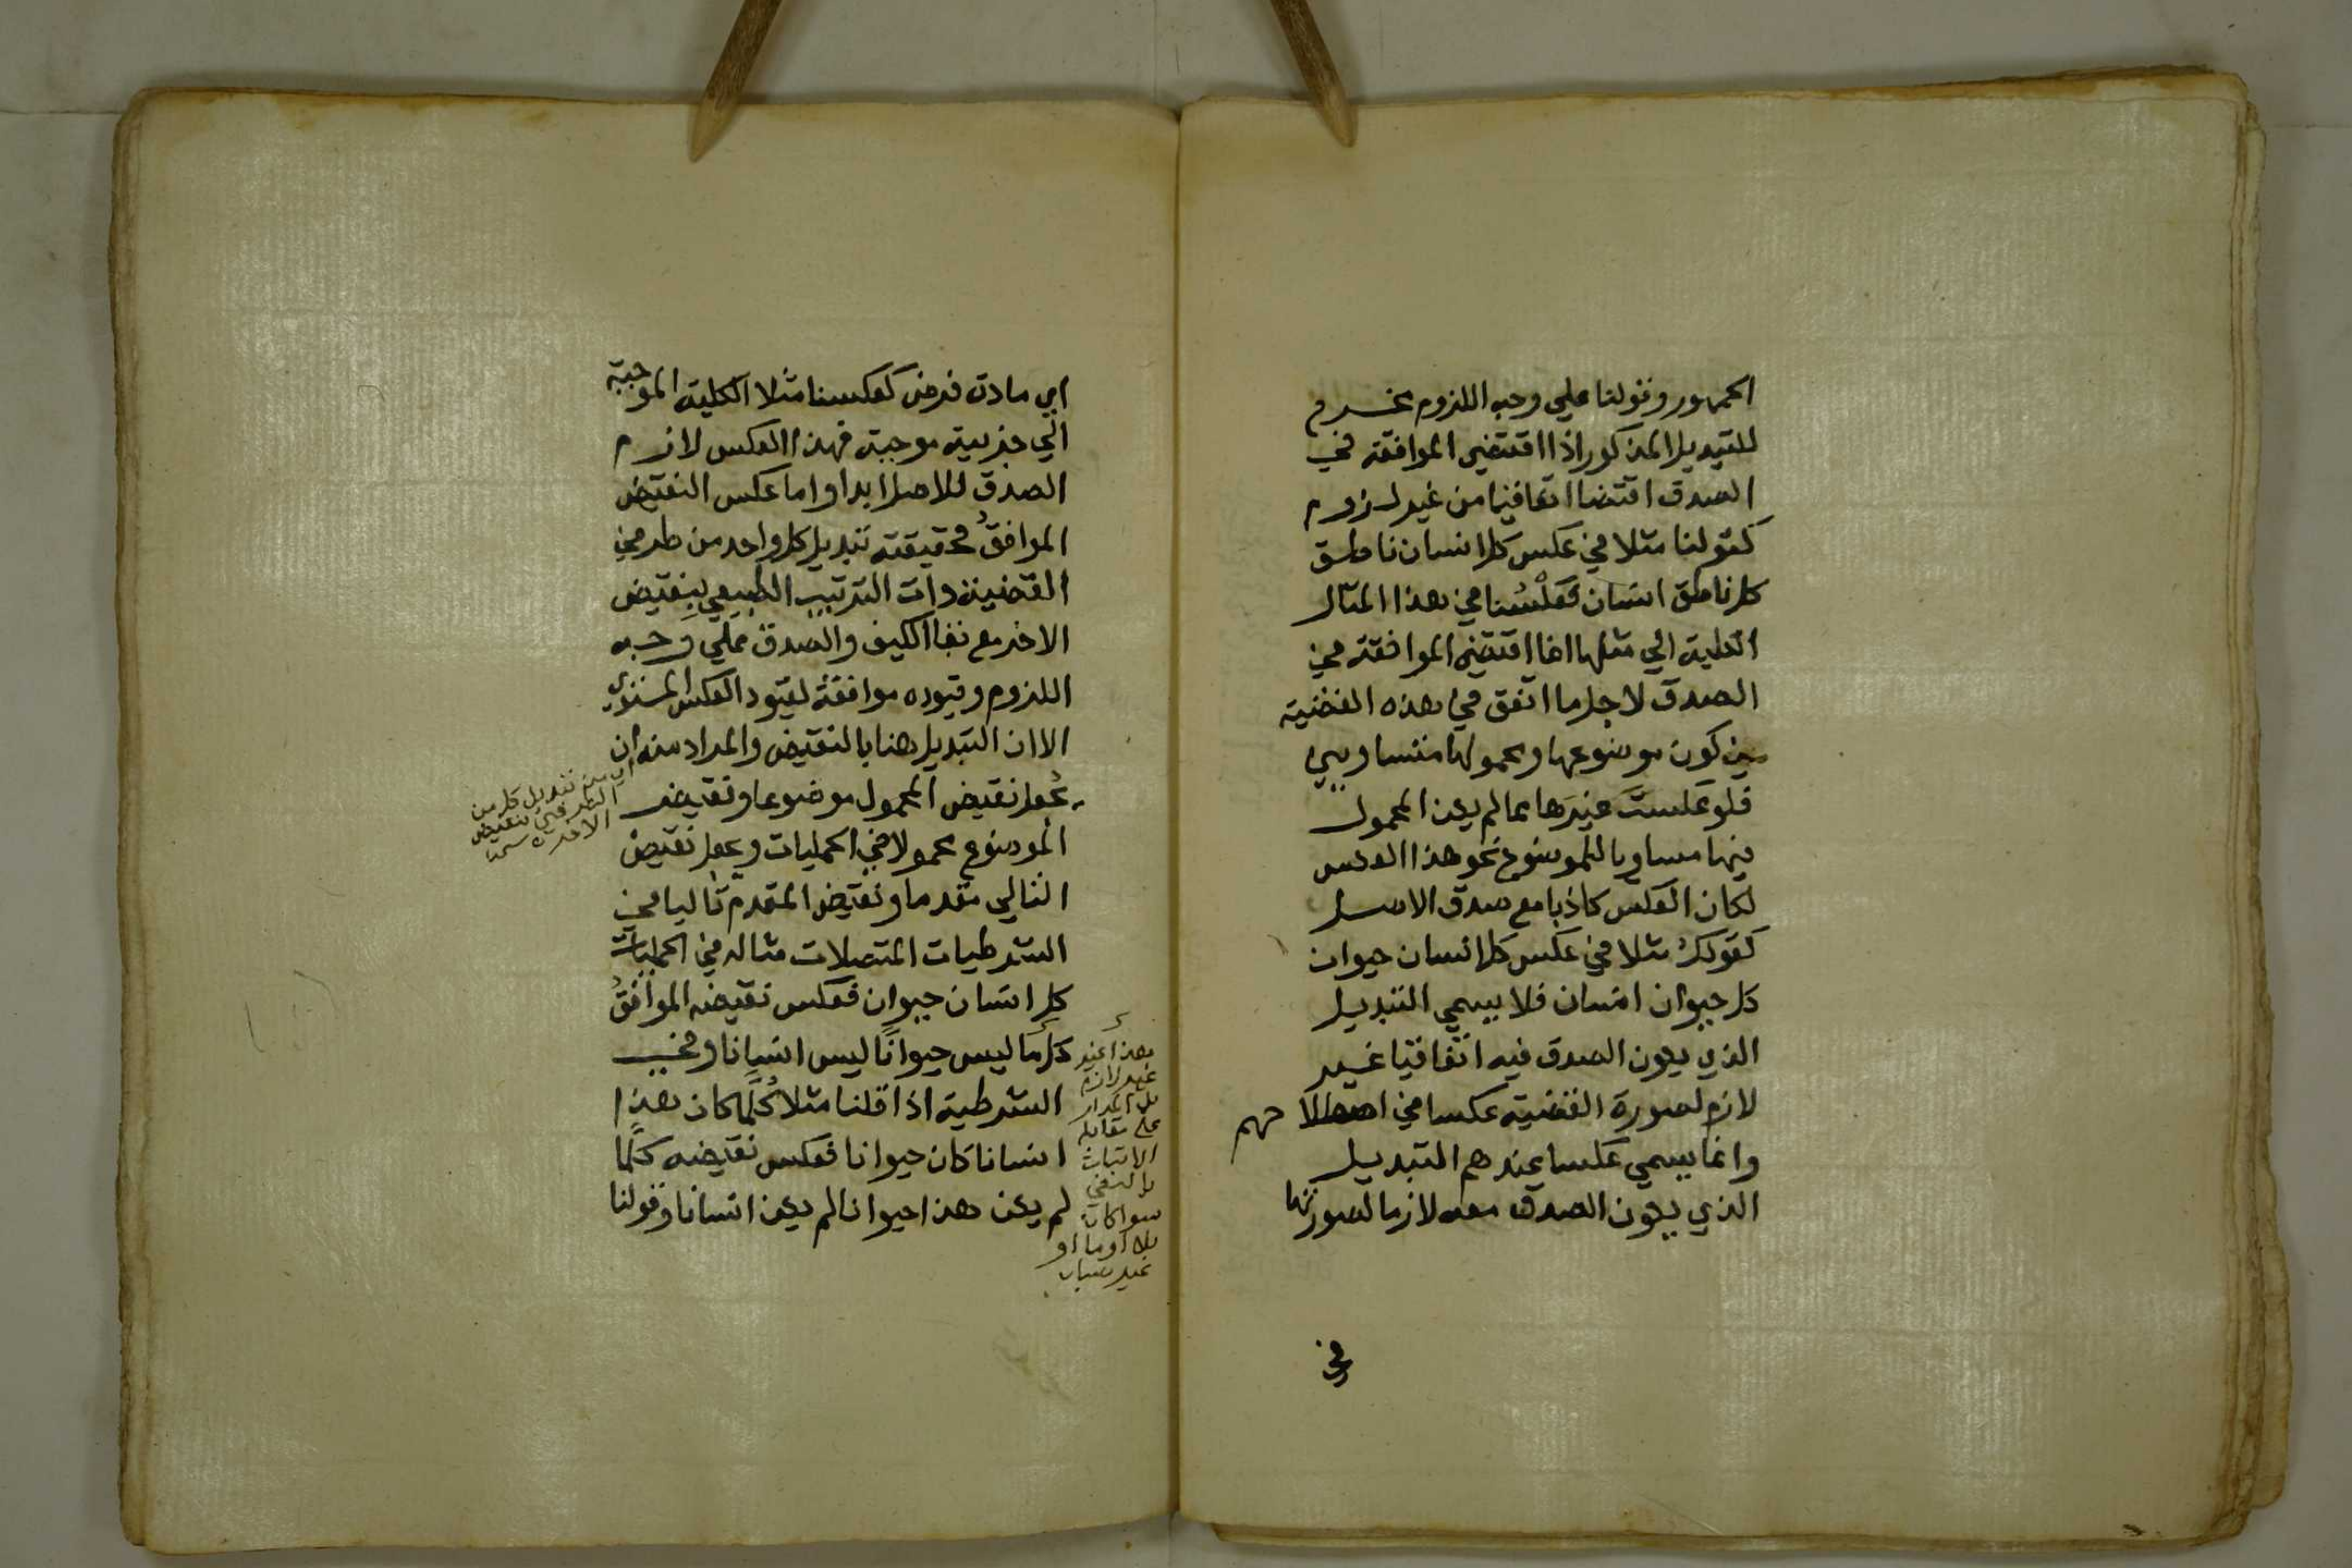 الجمهور وقولنا علي وجه اللزوم مخرج
للتبديل المذكور اذا اقتضي الموافقة في
الصدق اقتضا اتفاقيا من غير لزوم
كقولنا مثلا في عكس كل انسان ناطق
كل ناطق انسان فعكسُنا في هذا المثال
الكلية الي مثلها انما اقتضي الموافقة في
الصدق لاجل ما اتفق في هذه القضية
من كون موضوعها ومحمولها متساويين
فلو عكستَ غيرَها مما لم يكن المحمول
فيها مساويا للموضوع نحو هذا العكس
لكان العكس كاذبا مع صدق الاصل
كقولك مثلا في عكس كل انسان حيوان
كل حيوان انسان فلا يسمي التبديل
الذي يكون الصدق فيه اتفاقيا غير
لازم لصورة القضية عكسا في اصطلاحهم
وانما يسمي عكسا عندهم التبديل
الذي يكون الصدق معه لازما لصورتها
في
اي مادة فرض كعكسنا مثلا الكلية الموجبة
الي جزيية موجبة فهذا العكس لازم
الصدق للاصل ابدا واما عكس النقيض
الموافقُ فحقيقته تبديل كل واحد من طرفي
القضية ذات الترتيب الطبيعي بنقيض
الاخر مع بقا الكيف والصدق علي وجه
اللزوم وقيوده موافقة لقيود العكس المستوي
الا ان التبديل هنا بالنقيض والمراد منه ان
يجعل نقيض المحمول موضوعا ونقيض
الموضوع محمولا في الحمليات ويجعل نقيض
التالي مقدما ونقيض المقدم تاليا في
الشرطيات المتصلات مثاله في الحمليات
كل انسان حيوان فعكس نقيضه الموافقُ
كل ما ليس حيوانًا ليس انسانا وفي
الشرطية اذا قلنا مثلا كُلَّما كان هذا
انسانا كان حيوانا فعكس نقيضه كلما
لم يكن هذا حيوانا لم يكن انسانا وقولنا
اي من تبديل كل من
الطرفين بنقيض
الاخر
هذا
غير لازم
بل المدار
علي مقابلة
الاثبات
بالنفي
سوا كان
بلا او ما او
غير صبان